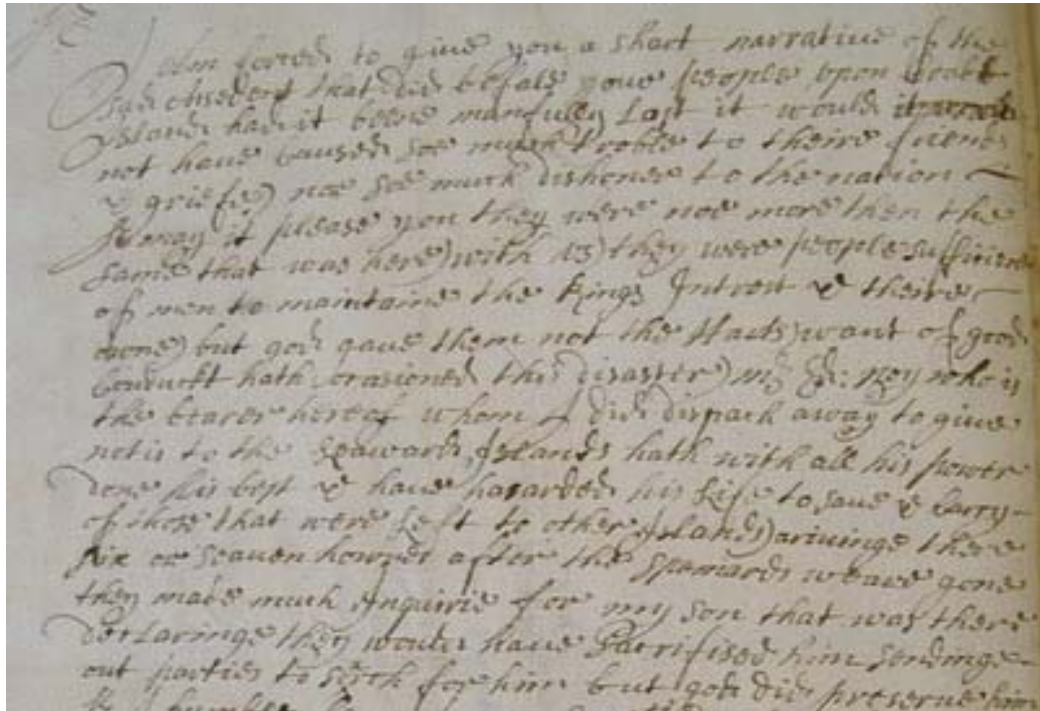 I am forced to give you a short narrative of the
sad that did befale youe people upon
Island had it beene manfully Lost it would
not have caused soe much troble to theire friends
& griefe) nor soe much dishoner to the nation
may it please you they were noe more then the
same that was here) with us) they were people sufficient
of men to maintaine the Kings Intrest & theire
owne) but god gave them not the Harts) want of good
Conduckt hath ocasioned this disaster) mr who is
the bearer hereof whom I did dispach away to give
notis to the seaward Islands hath with all his power
done his best & have hasarded his Life to save & Carry
of those that were Left to other Islands) arivinge there
six or seaven howres after the Spaniards weare gone
they made much Inquirie for my son that was there
declaringe they would have Sacrifised him sendinge
out parties to serch for him but god did preserve him